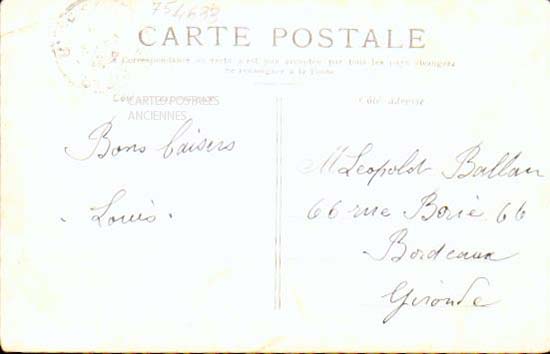 754633
CARTE POSTALE
La Correspondance au recto n'est pas acceptée par tous les pays étrangers
Se renseigner à la Poste
CARTES POSTALES
ANCIENNES
Côté adresse
Bons baisers
Louis.
M Leopold Ballan
66 rue Borie 66
Bordeaux
Gironde